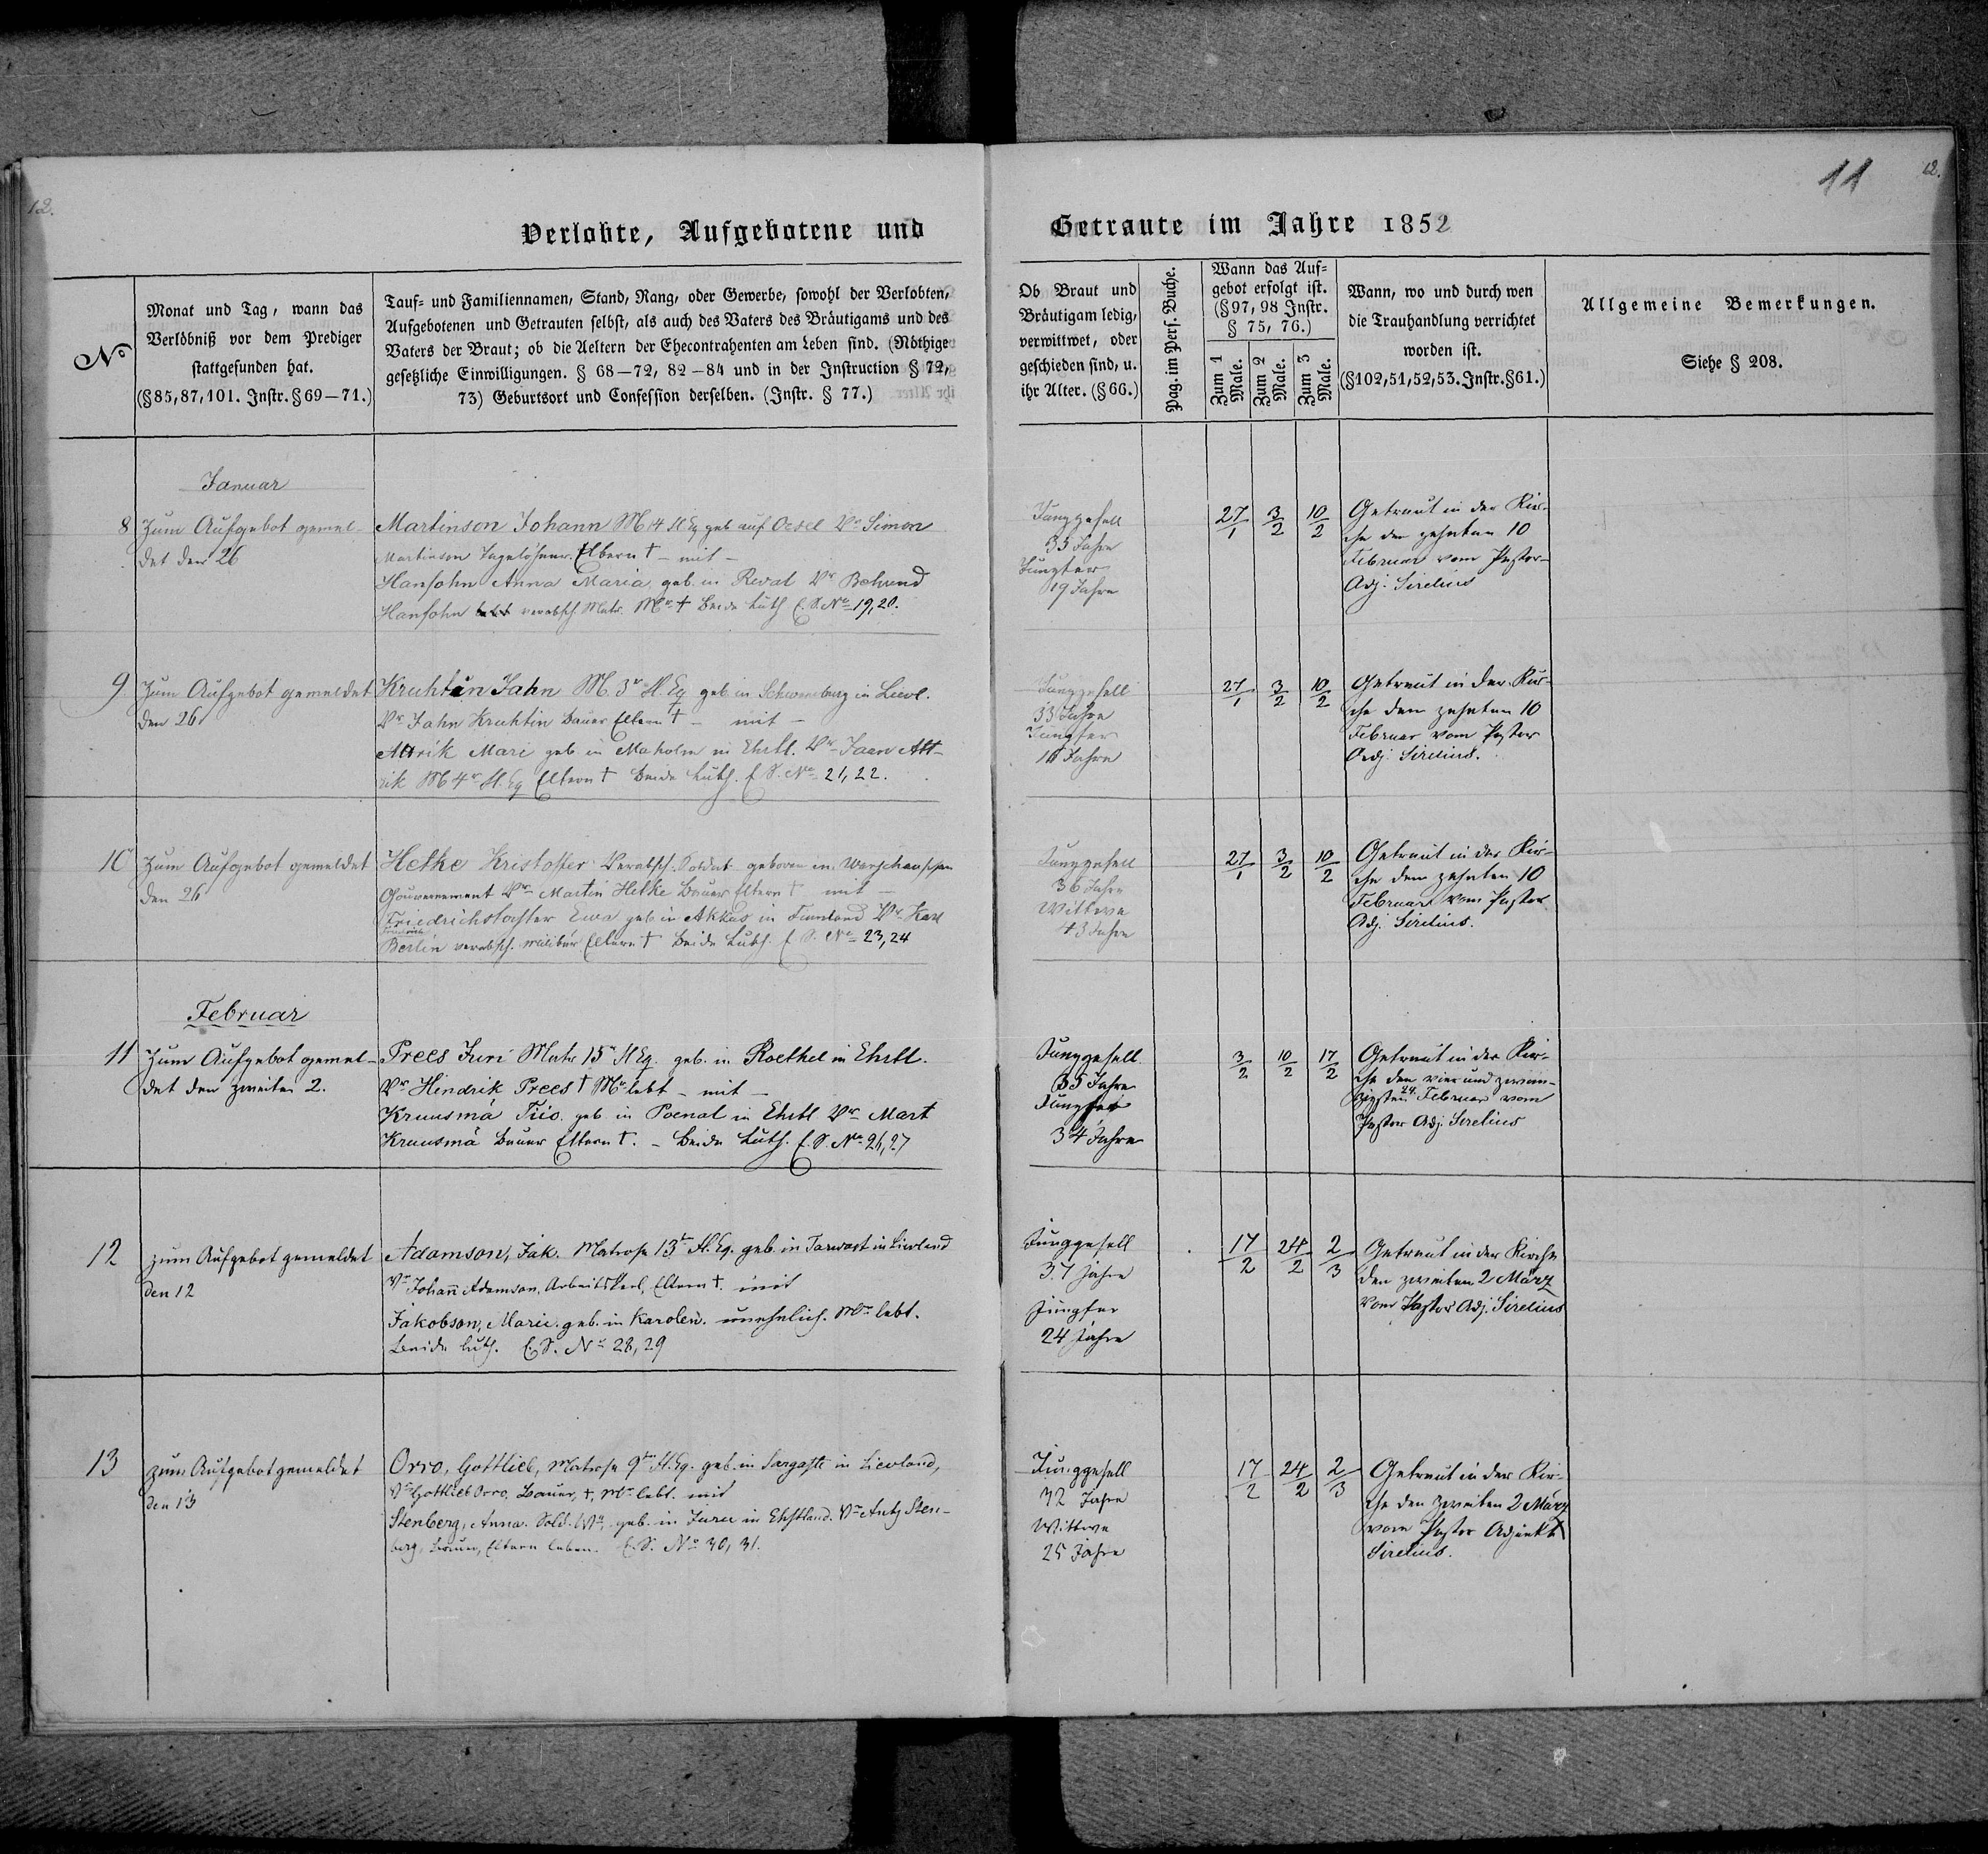 12.
11
12.
Verlobte, Aufgebotene und Getraute im Jahre 1852
No
Monat und Tag, wann das
Verlöbniß vor dem Prediger
stattgefunden hat.
(§85,87,101. Instr. §69—71.)
Tauf- und Familiennamen, Stand, Rang, oder Gewerbe, sowohl der Verlobten,
Aufgebotenen und Getrauten selbst, als auch des Vaters des Bräutigams und des
Vaters der Braut; ob die Aeltern der Ehecontrahenten am Leben sind. (Nöthige
gesetzliche Einwilligungen. § 68—72, 82—84 und in der Instruction § 72,
73) Geburtsort und Confession derselben. (Instr. § 77.)
Ob Braut und
Bräutigam ledig,
verwittwet, oder
geschieden sind, u.
ihr Alter. (§66.)
Pag. im Pers. Buche.
Wann das Auf-
gebot erfolgt ist.
(§97, 98 Instr.
§ 75, 76.)
Zum 1 Male.
Zum 2 Male.
Zum 3 Male.
Wann, wo und durch wen
die Trauhandlung verrichtet
worden ist.
(§102,51,52,53. Instr. §61.)
Allgemeine Bemerkungen.
Siehe § 208.
Januar
8 Zum Aufgebot gemel-
det den 26
Martinson Johann M 14 Fl Eq geb auf Oesel Vr Simon
Martinson Tagelöhner. Eltern † – mit –
Hansohn Anna Maria, geb. in Reval Vr Behrend
Hansohn verabsch. Matr. Mr † Beide Luth E. S. No 19, 20.
Junggesell
35 Jahre
Jungfer
19 Jahre
27/1 3/2 10/2
Getraut in der Kir-
che den zehnten 10
Februar vom Pastor-
Adj. Sirelius
9 Zum Aufgebot gemeldet
den 26
Kruhtin Jahn M. 3r Fl. Eq geb in Schwaneburg in Lievl.
Vr Jahn Kruhtin Bauer Eltern † – mit –
Attrik Mari geb in Maholm in Ehstl. Vr Jaan Att-
rik M 4r Fl. Eq Eltern † Beide Luth. E S. No 21, 22.
Junggesell
33 Jahre
Jungfer
Jahre
27/1 3/2 10/2
Getraut in der Kir-
che den zehnten 10
Februar vom Pastor
Adj. Sirelius.
10 Zum Aufgebot gemeldet
den 26
Helke Kristoffer Verabsch. Soldat geboren im Warschauschen
Gouvernement Vr Martin Helke Bauer Eltern † mit –
Friedrichstochter Ewa geb in Akkas in Finnland Vr Karl
Friedrich
Berlin verabsch. Eltern † Beide Luth. E S. No 23, 24
Junggesell
36 Jahre
Wittwe
43 Jahre
27/1 3/2 10/2
Getraut in der Kir-
che den zehnten 10
Februar vom Pastor
Adj. Sirelius.
Februar
11 Zum Aufgebot gemel-
det den zweiten 2.
Prees Juri Matr 15r Fl Eq. geb. in Roethel in Ehstl.
Vr Hindrik Prees † Mr lebt – mit –
Kruusmä Tiio geb in Poenal in Ehstl Vr Mart
Kruusmä Bauer Eltern †. – Beide Luth. E. S. No 26, 27
Junggesell
35 Jahre
Jungfer
34 Jahre
3/2 10/2 17/2
Getraut in der Kir-
che den vier und zwan-
zigsten 24. Februar vom
Pastor Adj. Sirelius
12 zum Aufgebot gemeldet
den 12
Adamson, Jak. Matrose 13r Fl. Eq. geb. in Tarwast in Lievland
Vr Johann Adamson, Arbeitskerl, Eltern †. mit
Jakobson, Marie. geb. in Karolen. unehelich. Mr lebt.
Beide luth. E. S. No 28, 29
Junggesell
37 Jahre
Jungfer
24 Jahre
17/2 24/2 2/3
Getraut in der Kirche
den zweiten 2 März
vom Pastor Adj. Sirelius
13 zum Aufgebot gemeldet
den 13
Orro, Gottlieb, Matrose 9ten Fl. Eq. geb. in Sargast in Lievland,
Vr Gottlieb Orro, Bauer, †, Mr lebt. mit
Stenberg, Anna. Sold. We, geb. in Juru in Ehstland. Vr Antz Sten-
berg, Bauer, Eltern leben. E. S. No 30, 31.
Junggesell
32 Jahre
Wittwe
25 Jahre
17/2 24/2 2/3
Getraut in der Kir-
che den zweiten 2 März
vom Pastor Adjunkt
Sirelius.